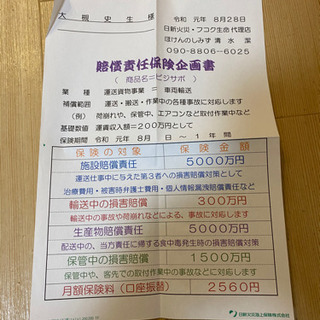 大槻史生様
令和 元年 8月28日
日新火災・フコク生命 代理店
ほけんのしみず 清水 潔
090-8806-6025
賠償責任保険企画書
( 商品名=ビジサポ )
業種 運送貨物事業 = 車両輸送
補償範囲 運送・搬送・作業中の各種事故に対応します
(例) 荷崩れや、保管中、エアコンなど取付作業中など
基礎数値 運賃収入額=200万円として
保険期間 令和 元年 8月 日 ~ 1 年 間
保険の対象 保険金額
施設賠償責任 5000万円
運送仕事中に与えた第3者への損害賠償対策として
治療費用・被害時弁護士費用・個人情報漏洩賠償責任など
輸送中の損害賠償 300万円
輸送中の事故や荷崩れなどによる、事故に対応します
生産物賠償責任 5000万円
配送中の、当方責任に帰する食中毒発生時の損害賠償対策
保管中の損害賠償 1500万円
保管中や、客先での取付作業中の事故についても対応します
月額保険料(口座振替) 2560円
日新火災海上保険株式会社